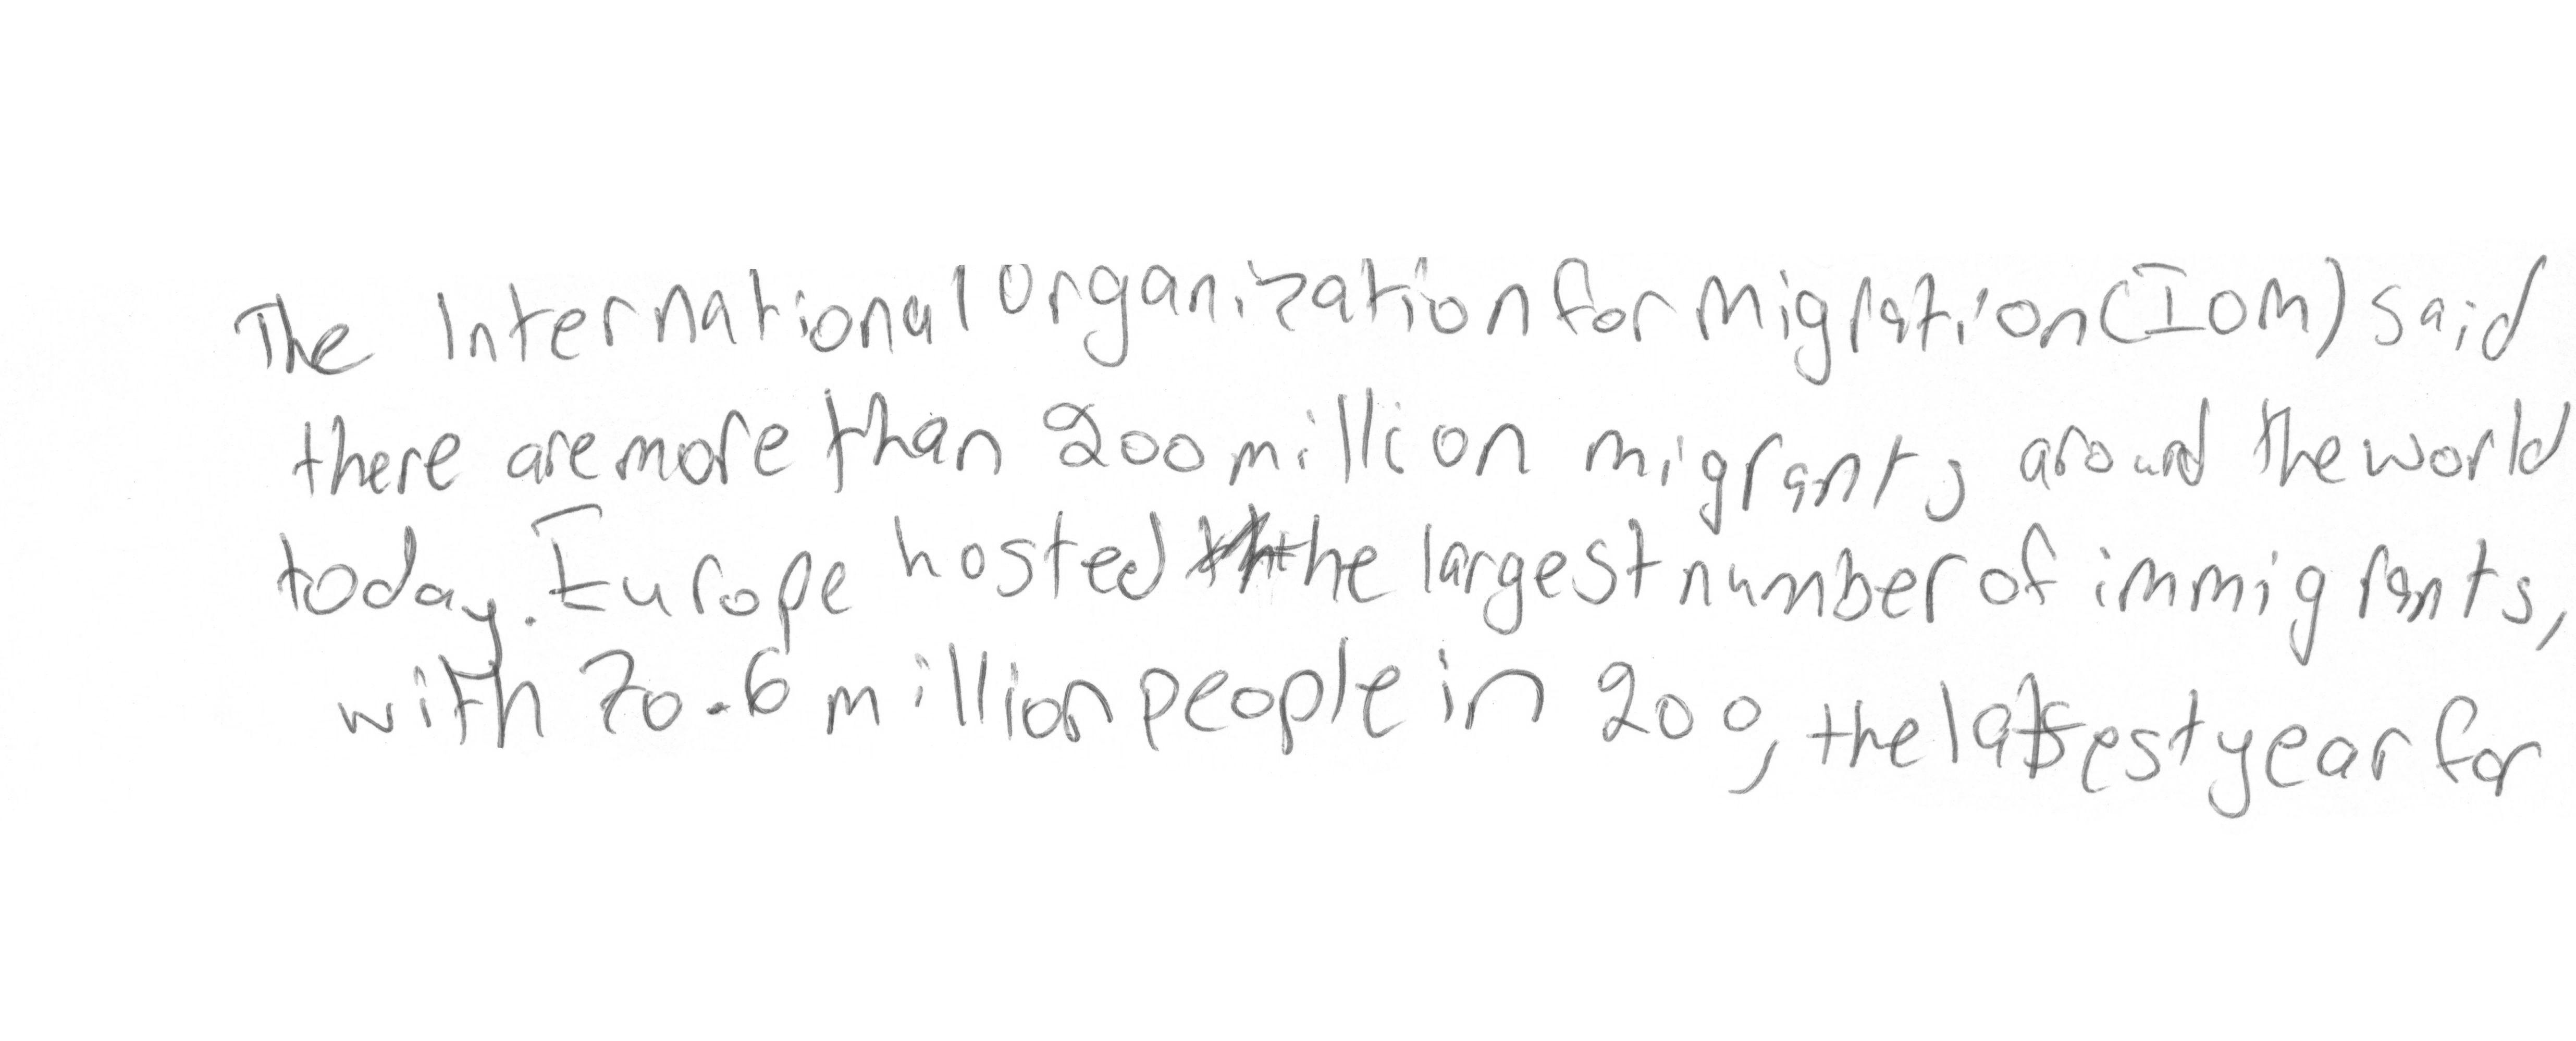 The International Organization for Migration (IOM) said
there are more than 200 million migrants around the world
today. Europe hosted the largest number of immigrants,
with 70.6 million people in 200, the latest year for